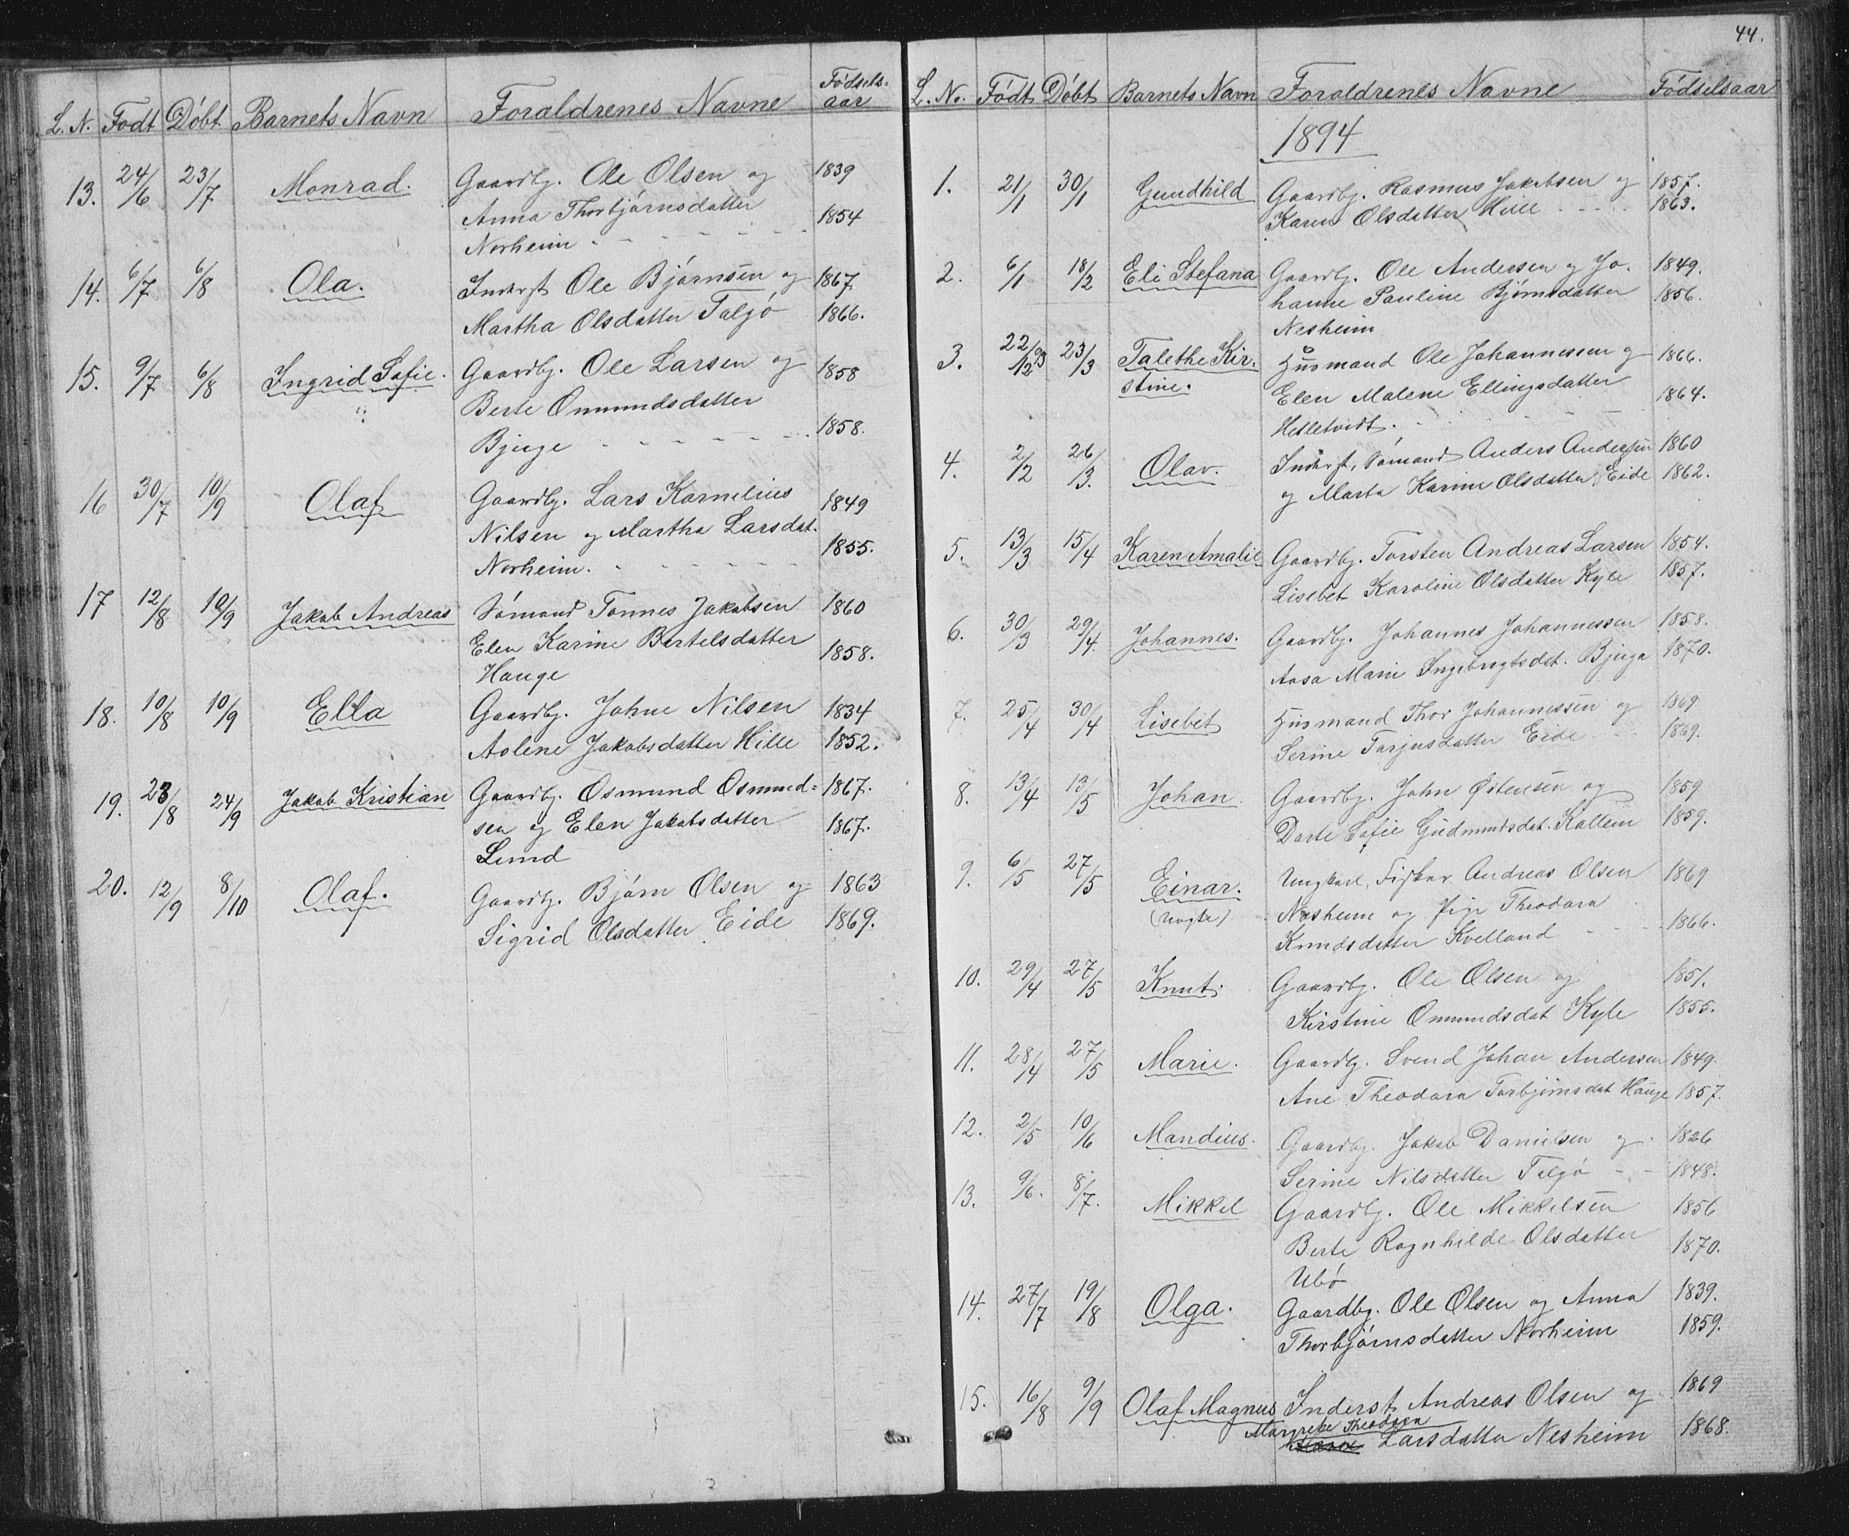 L. N. Födt Döbt Barnets Navn Foraldrenes Navne Födsels-
aar
13. 24/6 23/7 Monrad. Gaardbg. Ole Olsen og 1839
Anna Thorbjörnsdatter 1854
Norheim - - - - - -
14. 6/7 6/8 Ola. Inderst Ole Bjørnsen og 1867.
Martha Olsdatter Talgö 1866.
15. 9/7 6/8 Ingrid Sofie. Gaardbg. Ole Larsen og 1858
Berte Omundsdatter
Bjuge - - - - - - 1858.
16 30/7 10/9 Olaf Gaardbg. Lars Kornelius 1849
Nilsen og Martha Larsdat. 1855.
Norheim. - - - - - -
17 12/8 10/9 Jakob Andreas Sömand Tönnes Jakobsen 1860
Elen Karine Bertelsdatter 1858.
Hauge
18. 10/8 10/9 Ella Gaardbg. Johne Nilsen 1834
Aolene Jakobsdatter Hille 1852.
19. 23/8 24/9 Jakob Kristian Gaardbg. Osmund Osmund= 1867.
sen og Elen Jakobsdatter 1867.
Lund
20. 12/9 8/10 Olaf. Gaardbg. Bjørn Olsen og 1863
Sigrid Olsdatter Eide 1869.
44.
L. No. Födt Döbt Barnets Navn Foraldrenes Navne Födselsaar
1894
1. 21/1 30/1 Gundhild Gaardbg. Rasmus Jakobsen og 1857.
Karen Olsdatter Hille - - - - 1863.
2. 6/1 18/2 Eli Stefana Gaardbg. Ole Andersen og Jo- 1849.
hanne Pauline Bjørnsdatter 1856.
Nesheim
3. 22/12 93 23/3 Talethe Kir- Husmand Ole Johannessen og 1866.
stine. Elen Malene Ellingsdatter 1864.
Hetletvedt. - - - - - -
4. 2/12 26/3. Olav. Inderst, Sømand Anders Andersen 1860
og Marta Karine Olsdatter Eide 1862.
5. 13/3 15/4 Karen Amalie Gaardbg. Torsten Andreas Larsen 1854.
Lisebet Karoline Olsdatter Kyle 1857.
6. 30/3 29/4 Johannes. Gaardbg. Johannes Johannessen 1858.
Aasa Marie Ingebregtsdat. Bjuga 1870.
7. 25/4 30/4 Lisebet Husmand Thor Johannessen og 1869.
Serine Tarjusdatter Eide - - 1869.
8. 13/4 13/5 Johan. Gaardbg. John Østensen og 1859.
Dorte Sofie Gudmundsdat. Kallem 1859.
9. 6/5 27/5 Einar. Ungkarl, Fisker Andreas Olsen 1869
(uægte) Nesheim og Pige Theodora
Knudsdatter Kvelland - - - 1866.
10. 29/4 27/5 Knut. Gaardbg. Ole Olsen og 1851.
Kirstine Omundsdat Kyle 1855.
11. 28/4 27/5 Marie. Gaardbg. Svend Johan Andersen 1849.
Ane Theodora Torbjørnsdat Hauge 1857.
12. 2/5 10/6 Mandius. Gaardbg. Jakob Danielsen og 1826
Serine Nilsdatter Talgö - - 1848.
13. 9/6. 8/7. Mikkel Gaardbg. Ole Mikkelsen 1856
Berte Ragnhilde Olsdatter 1870.
Ubö
14. 27/7 19/8 Olga. Gaardbg. Ole Olsen og Anna 1839.
Thorbjørnsdatter Norheim 1859.
15. 16/8 9/9 Olaf Magnus Inderst Andreas Olsen og 1869
Margrete Theodora
Larsdatter Nesheim 1868.